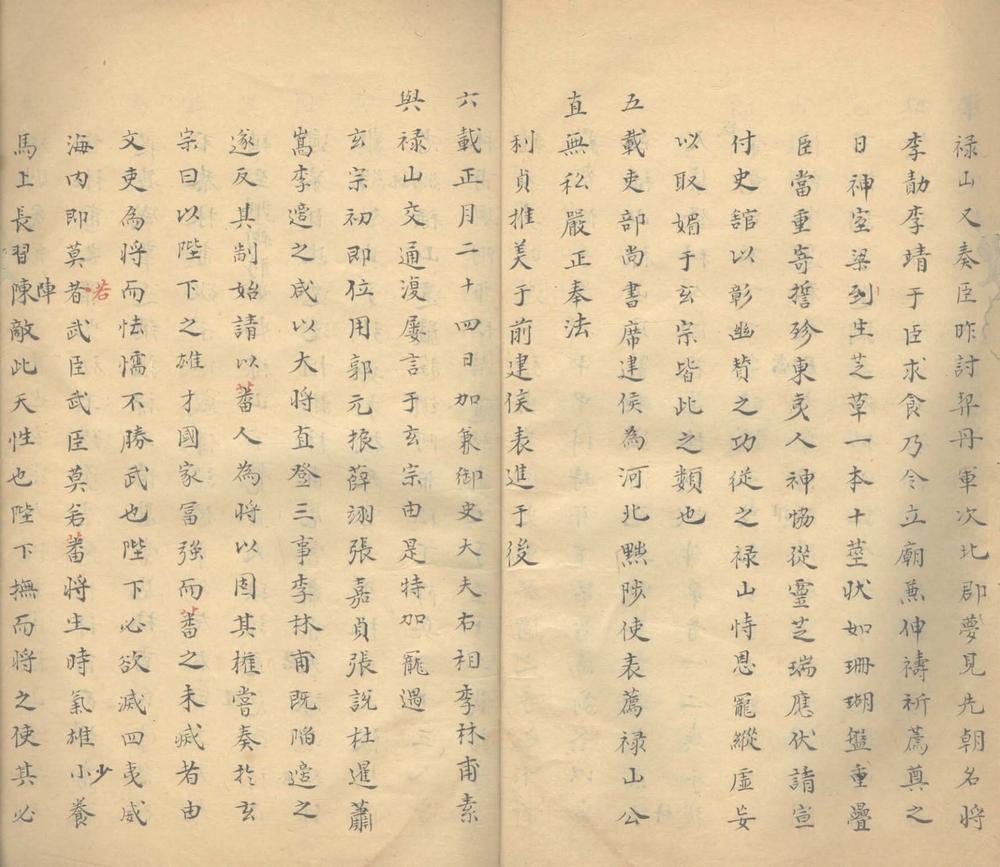 禄山又奏臣昨討契丹軍次北郡夢見先朝名將
李勣李靖于臣求食乃令立廟兼伸禱祈薦奠之
日神室梁到生芝草一本十莖狀如珊瑚盤重疊
臣當重寄誓殄東夷人神協從靈芝瑞應伏請宣
付史舘以彰幽贊之功從之禄山恃恩寵縱虛妄
以取媚于玄宗皆此之類也
五載吏部尚書席建侯為河北黜陟使表薦禄山公
直無私嚴正奉法
利貞推美于前建侯表進于後
六載正月二十四日加兼御史大夫右相李林甫素
與禄山交通復屡言于玄宗由是特加寵遇
玄宗初即位用郭元振薛翊張嘉貞張説杜暹蕭
嵩李適之咸以大將直登三事李林甫既陷適之
遂反其制始請以蕃人為將以固其權嘗奏於玄
宗曰以陛下之雄才國家冨強而蕃之未滅者由
文吏為將而怯懦不勝武也陛下必欲滅四夷威
海内即莫者若武臣武臣莫若蕃將生時氣雄小少養
馬上長習陳陣敵此天性也陛下撫而將之使其必